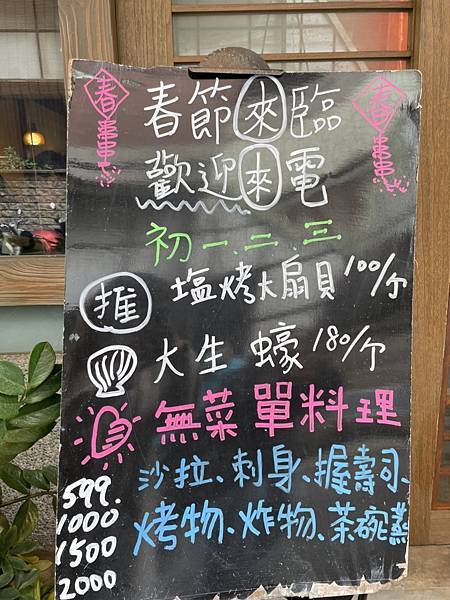 春 春節來臨 春
歡迎來電
初一.二.三
推 塩烤大扇貝100/个
大生蠔180/个
無菜單料理
599. 沙拉、刺身、握壽司、
1000 烤物、炸物、茶碗蒸
1500
2000